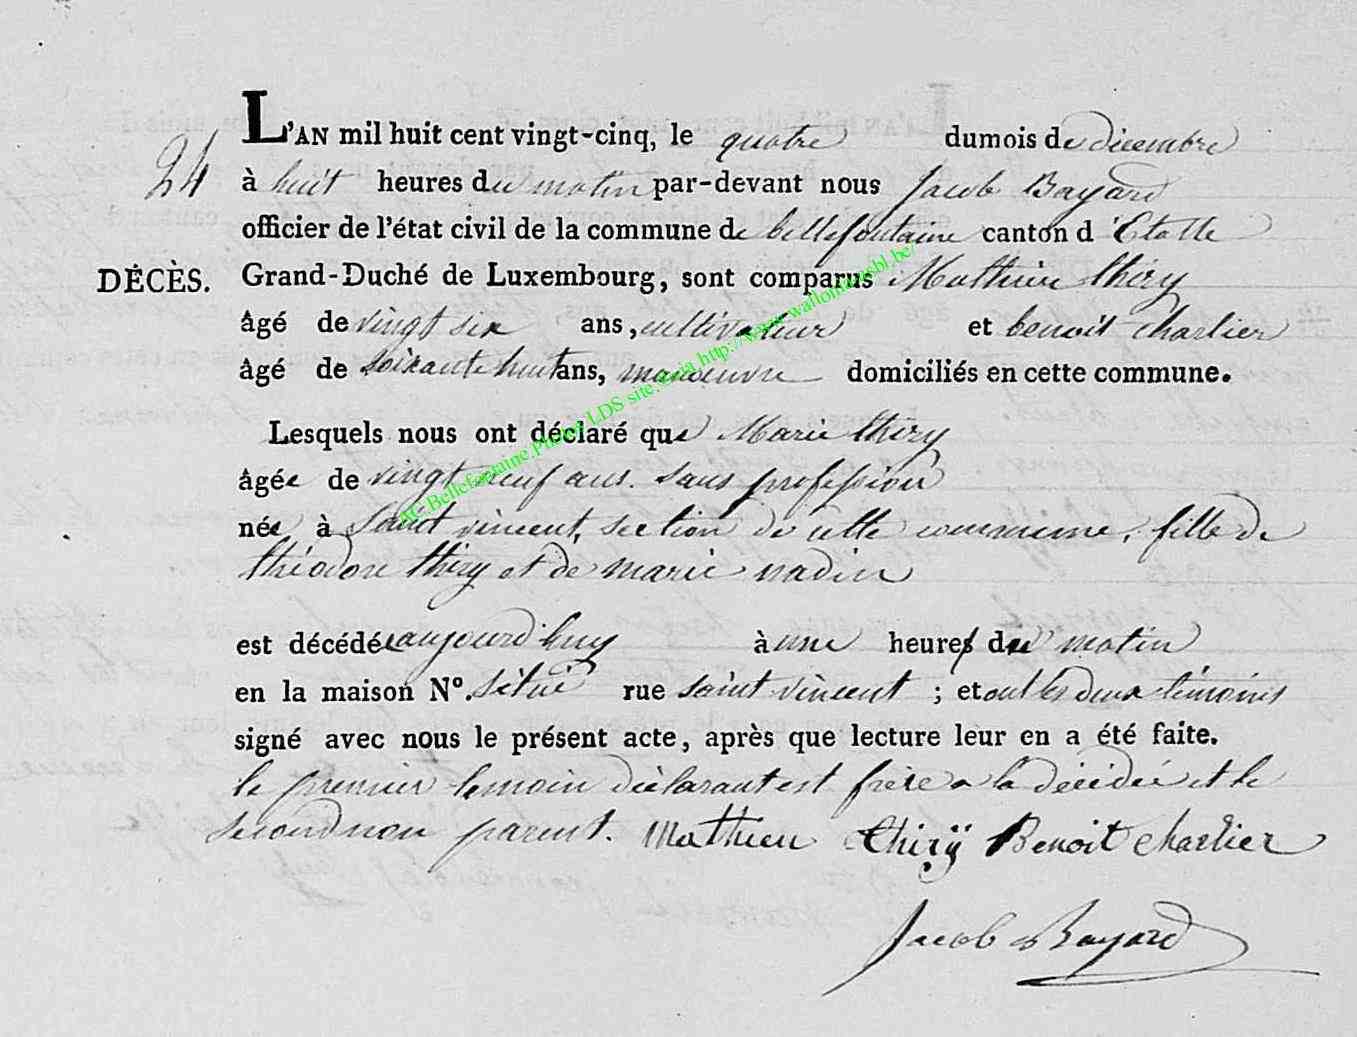 24
L'AN mil huit cent vingt-cinq, le quatre du mois de decembre
à huit heures du matin par-devant nous Jacob Bayard
officier de l'état civil de la commune de bellefontaine canton d'Etalle
DÉCÈS. Grand-Duché de Luxembourg, sont comparus Mathieu thiry
âgé de vingt six ans, cultivateur et benoit charlier
âgé de soixante huit ans, manoeuvre domiciliés en cette commune.
Lesquels nous ont déclaré que Marie thiry
âgée de vingt neuf ans. sans profession
née à Saint vincent, section de cette commune, fille de
théodore thiry et de marie nadin
est décédée aujourd'huy à une heure du matin
en la maison N°. situé rue saint vincent ; et ont les deux témoins
signé avec nous le présent acte, après que lecture leur en a été faite.
le premier temoin déclarant est frère a la décédée et le
second non parent. Mathieu Thirÿ Benoit charlier
Jacob Bayard
AC Bellefontaine. LDS site via http://www.wallonia.be/